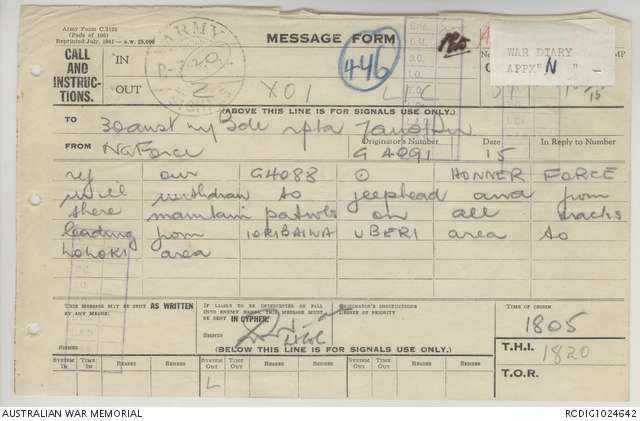 Army Form C.2128
(Pads of 100)
Reprinted July, 1941
MESSAGE FORM
446
WAR DIARY
APPX "N"
CALL AND INSTRUCTIONS.
IN
OUT
ARMY
SIGNALS
XO1
(ABOVE THIS LINE IS FOR SIGNALS USE ONLY.)
TO 30 Aust Inf Bde rpta 7 Aust Div
FROM NGForce
Originator's Number G4091
Date 15
In Reply to Number
ref our G4088 ⊙ HONNER FORCE
will withdraw to jeephead and from
there maintain patrols on all tracks
leading from IORIBAIWA UBERI area to
area
THIS MESSAGE MAY BE SENT AS WRITTEN BY ANY MEANS.
IF LIABLE TO BE INTERCEPTED OR FALL INTO ENEMY HANDS, THIS MESSAGE MUST BE SENT IN CYPHER.
ORIGINATOR'S INSTRUCTIONS
DEGREE OF PRIORITY
TIME OF ORIGIN
1805
SIGNED
(BELOW THIS LINE IS FOR SIGNALS USE ONLY.)
T.H.I. 1820
T.O.R.
SYSTEM IN TIME IN READER SENDER SYSTEM OUT TIME OUT READER SENDER SYSTEM OUT TIME OUT READER SENDER
L
AUSTRALIAN WAR MEMORIAL
RCDIG1024642